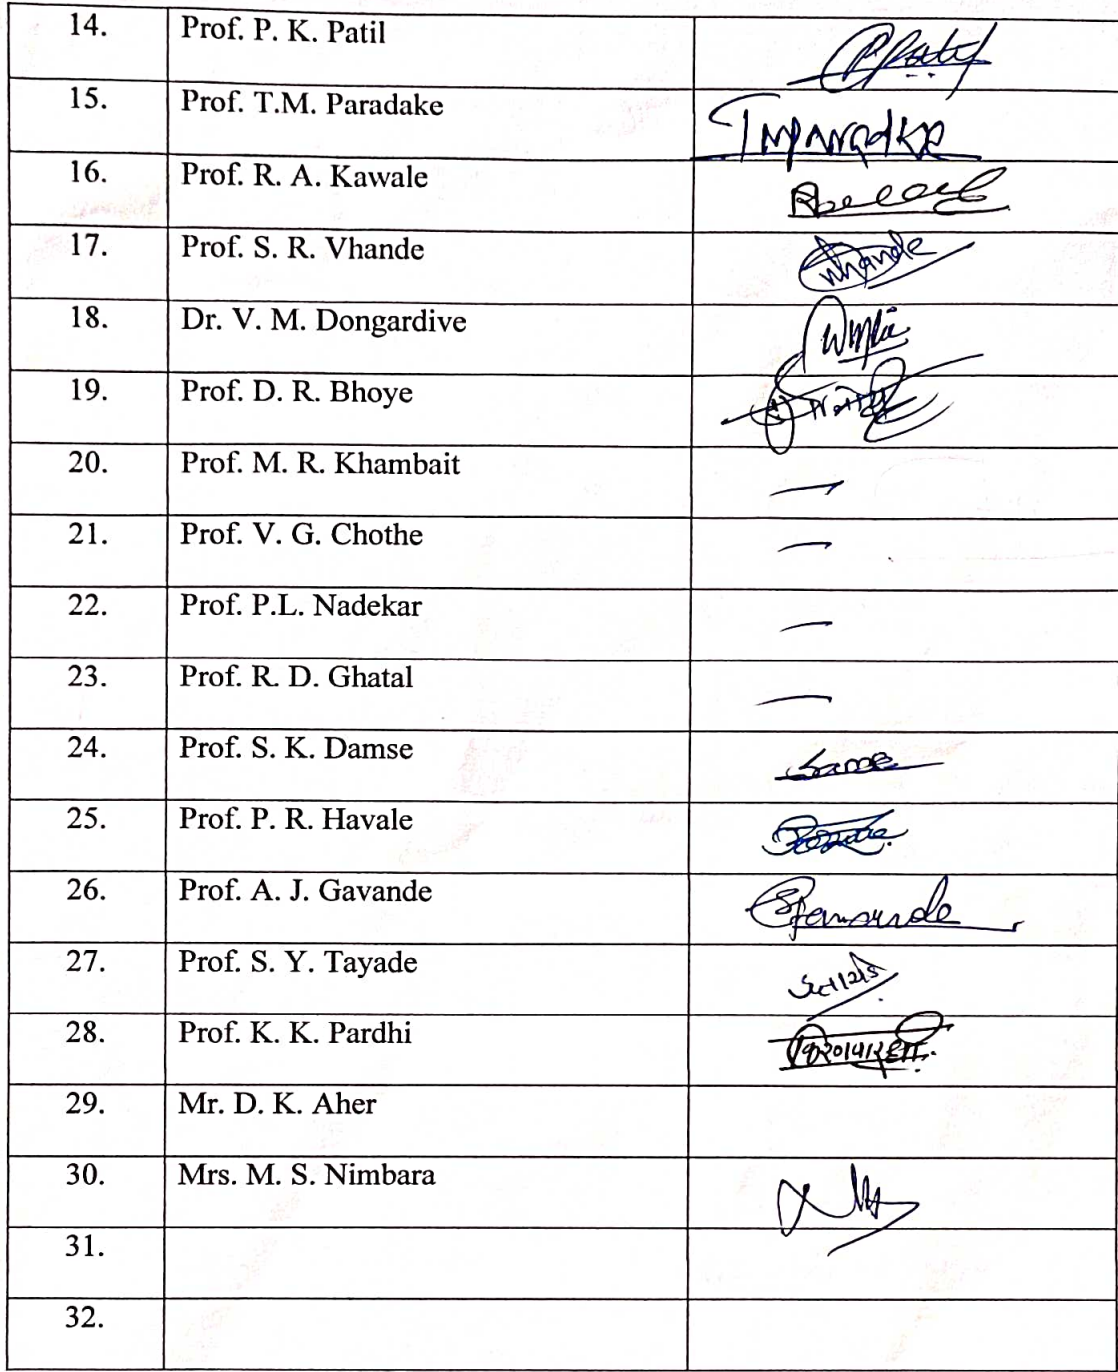 14. Prof. P. K. Patil PPatil
15. Prof. T.M. Paradake Tmparadke
16. Prof. R. A. Kawale
17. Prof. S. R. Vhande Vhande
18. Dr. V. M. Dongardive
19. Prof. D. R. Bhoye
20. Prof. M. R. Khambait —
21. Prof. V. G. Chothe —
22. Prof. P.L. Nadekar —
23. Prof. R. D. Ghatal —
24. Prof. S. K. Damse
25. Prof. P. R. Havale
26. Prof. A. J. Gavande
27. Prof. S. Y. Tayade
28. Prof. K. K. Pardhi
29. Mr. D. K. Aher
30. Mrs. M. S. Nimbara
31.
32.